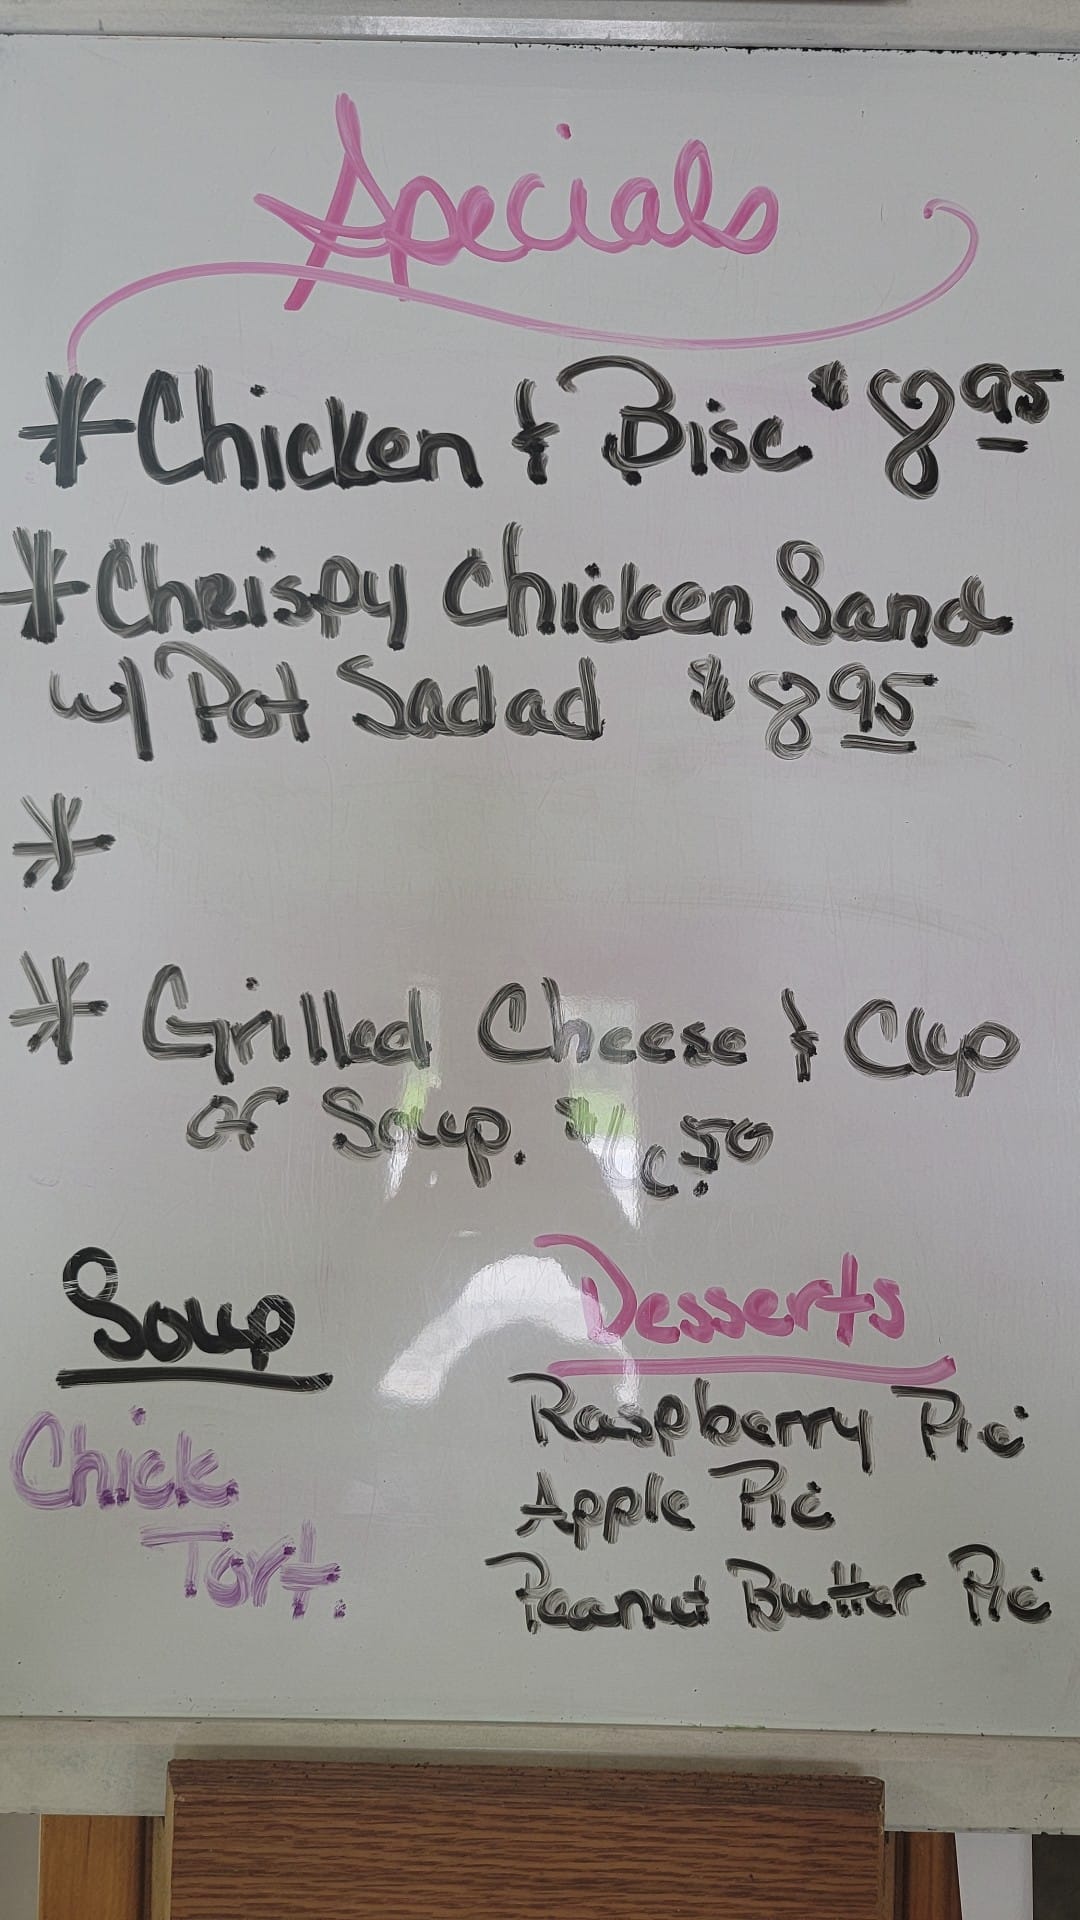 Specials
* Chicken & Bisc $8.95
* Chrispy Chicken Sand
w/ Pot Sadad $8.95
*
* Grilled Cheese & Cup
of Soup. $6.50
Soup
Chick
Tort.
Desserts
Raspberry Pie
Apple Pie
Peanut Butter Pie